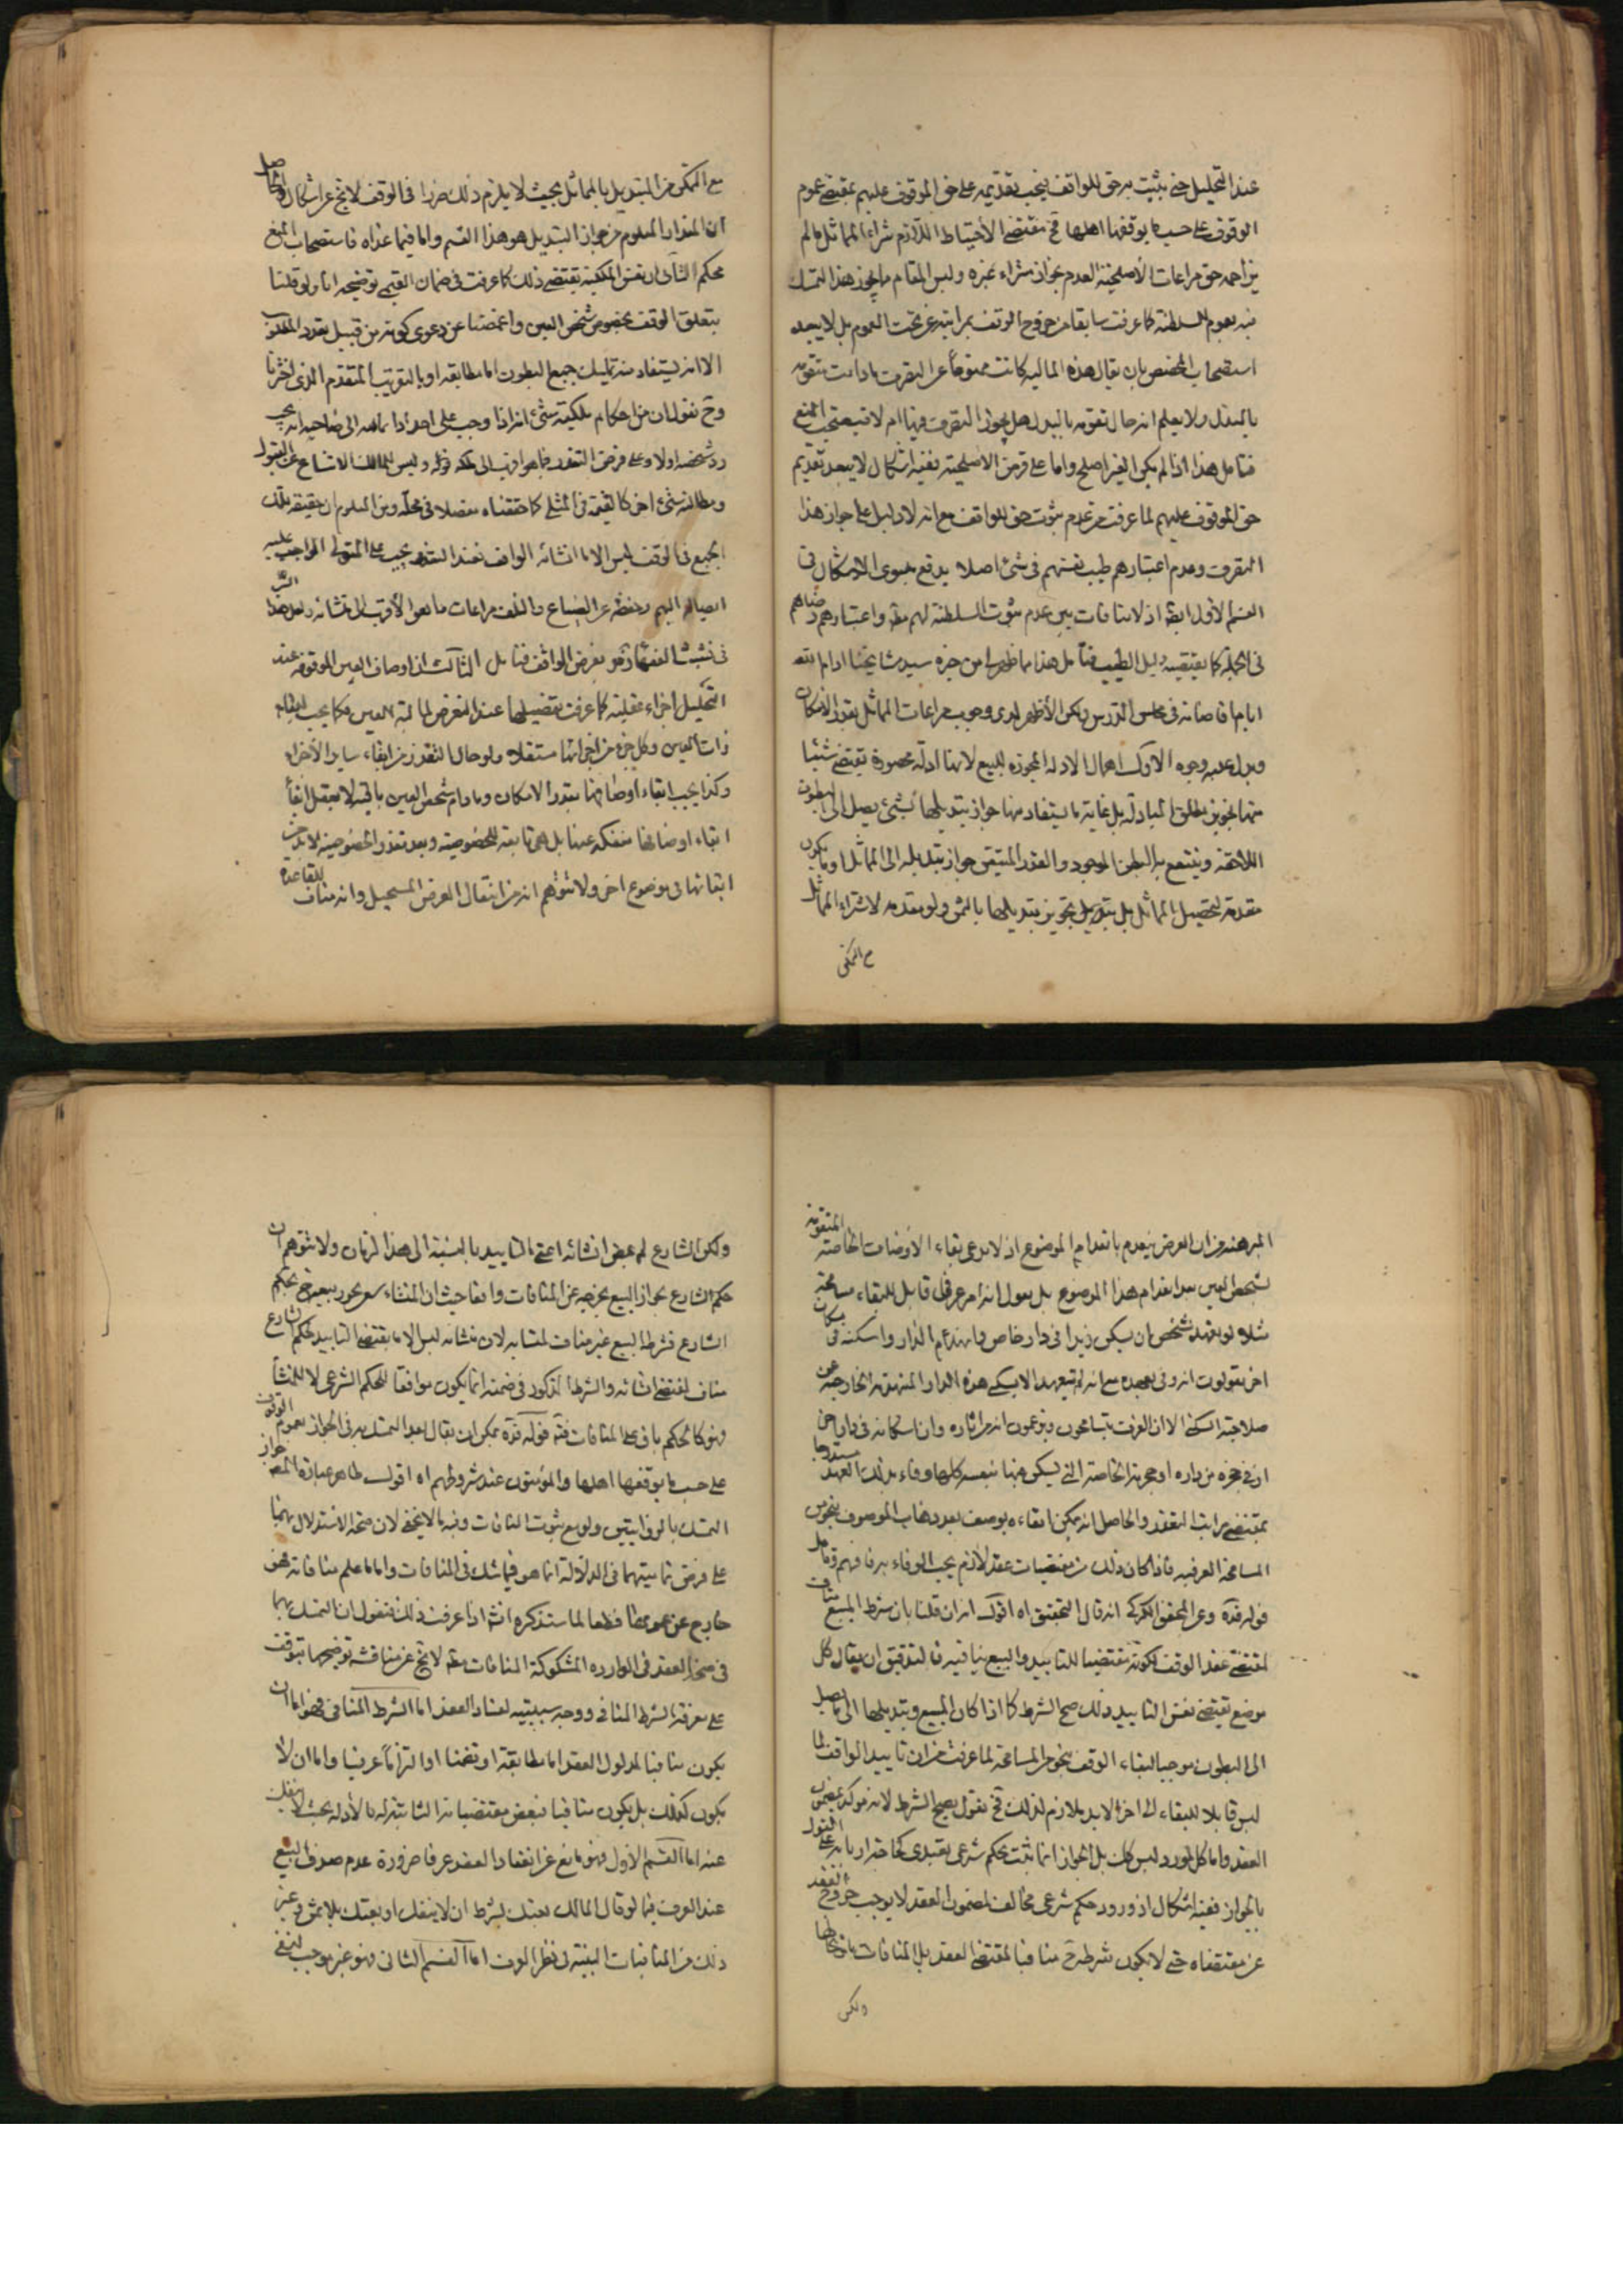 عند التحليل حتى يثبت به حق للواقف يجب تقديمه على حق الموقوف عليهم بمقتضى عموم
الوقوف على حسب ما يوقفها اهلها فح مقتضى الاحتياط اللازم شراء المماثل ما لم
يزاحمه حق مراعات الأصلحية لعدم جواز شراء غيره وليس المقام مما يجوز هذا التمسك
فيه بعموم السلطنة كما عرفت سابقا من خروج الوقف بمراتبه عن تحت العموم بل لا يبعد
استصحاب المختص بان يقال هذه المالية كانت ممنوعاً عن التصرف ما دامت متقومة
بالمبدل ولا يعلم انه حال تقومه بالبدل هل يجوز التصرف فيها ام لا فيستصحب المنع
فتامل هذا اذا لم يكن الغير اصلح واما على فرض الاصلحية ففيه اشكال لا يبعد تقديم
حق الموقوف عليهم لما عرفت من عدم ثبوت حق للواقف مع انه لا دليل على جواز هذا
التصرف وعدم اعتبارهم طيب نفسهم فى شئ اصلا يدفع الاشكال فى
القسم الأول ايضا اذ لا منافات بين عدم ثبوت السلطنة لهم واعتبار رضاهم
فى الجملة كما يقتضيه دليل الطيب فتامل هذا ما ظهر لى من جزه سيد مشايخنا ادام الله
ايام افاضاته فى مجلس الدرس ولكن الأظهر لدى وجوب مراعات المماثل بقدر الامكان
ويدل عليه وجوه الاول اهمال الادلة المجوزه للبيع لانها ادلة محصورة تقتضى شيئا
منها تجويز مطلق المبادلة بل غاية ما يستفاد منها جواز تبديلها بشئ يصل الى البطون
اللاحقة وينتفع به البطن الموجود والقدر المتيقن جواز تبديله الى المماثل او ما يكون
مقدمة لتحصيل المماثل بل تجويز تبديلها بالثمن ولو مقدمه لاشتراء المماثل
مع التمكن
مع التمكن من التبديل بالمماثل بحيث لا يلزم ذلك ضررا فى الوقف لا يخ عن اشكال والحاصل
ان المقدار المعلوم من جواز التبديل هو هذا القسم واما فيما عداه فاستصحاب المنع
محكم الثانى ان نفس الملكية يقتضى ذلك كما عرفت فى ضمان القيمى توضيحه انا ولو قلنا
بتعلق الوقف بخصوص شخص العين واغمضنا عن دعوى كونه من قبيل تعدد المطلوب
الا انه يستفاد منه تمليك جميع البطون اما مطابقه او بالتقريب المتقدم الذى اخترنا
وح نقول ان من احكام ملكية شئ انه اذا وجب على احد اداء ماله الى صاحبه انه يجب
رد شخصه اولا وعلى فرض التعذر فما هو اقرب الى ملكه نوعا وليس للمالك الامتناع عن القبول
ومطالبة شئ اخر كالقيمة فى المثلى كما حققناه مفصلا فى محله ومن المعلوم ان حقيقة تملك
الجميع فى الوقف ليس الا ما انشائه الواقف فعند التعذر يجب على المتولى الواجب عليه
ايصاله اليهم وحفظه عن الضياع والتلف مراعات ما هو الأقرب الى منشائه ولعل هذا السر
فى تشبث الفقهاء نحو بغرض الواقف فتامل الثالث ان اوصاف العين الموقوفه عند
التحليل اجزاء عقلية كما عرفت تفصيلها عند التعرض لمالية العين فكما يجب ابقاء
ذات العين وكل جزء من اجزائها مستقلا ولو حال التعذر من ابقاء ساير الأجزاء
وكذا يجب ابقاء اوصافها بقدر الامكان وما دام شخص العين باقية لا يعقل
ابقاء اوصافها منفكه عنها بل هى تابعة للخصوصية وبعد تعذر الخصوصية لابد من
ابقائها فى موضوع اخر ولا تتوهم انه من انتقال العرض المستحيل وانه مناف للقاعدة
المبرهنة من ان العرض ينعدم بانعدام الموضوع اذ لا ندعى بقاء الأوصاف الخاصة المتقومة
بشخص العين بعد انعدام هذا الموضوع بل نقول انه امر عرفى قابل للبقاء مسامحة
مثلا لو تعهد شخص ان يسكن زيدا فى دار خاص فانهدم الدار واسكنه فى مكان
اخر يقولون انه وفى بعهده مع انه لم يتعهد الا بسكنى هذه الدار المنهدمة الخارجة عن
صلاحية السكنى الا ان العرف يتسامحون ويزعمون انه من اثاره وان اسكانه فى دار اخر
او فى حجره من داره او حجرته الخاصة التى يسكن فيها بنفسه كلها وفاء بذلك العهد
بمقتضى مراتب التعذر والحاصل انه يمكن ابقاءه بوصف بعد ذهاب الموصوف بنحو من
المسامحة العرفيه فاذا كان ذلك من مقتضيات عقد لازم يجب الوفاء به فافهم وتامل
قوله قده وعن المحقق الكركى انه قال التحقيق اه اقول انه ان قلنا بان شرط البيع مناف
لمقتضى عقد الوقف لكونه مقتضيا للتابيد والبيع ينافيه فالتدقيق ان يقال كل
موضع تقتضى نفس التابيد ذلك صح الشرط كما اذا كان المبيع وتبديلها الى ما يصل
الى البطون موجبا لبقاء الوقف بنحو من المسامحة لما عرفت من ان تابيد الواقف لما
ليس قابلا للبقاء الى اخر الابد ملازم لذلك فح نقول يصح الشرط لانه موكد لمضمون
العقد واما كل مورد ليس كك بل الجواز انما ثبت بحكم شرعى تعبدى كحاجة اربابه على القول
بالجواز ففيه اشكال اذ ورود حكم شرعى مخالف لمضمون العقد لا يوجب خروج العقد
عن مقتضاه حتى لا يكون شرطه ح منافيا لمقتضى العقد بل المنافات بحالها
ولكن
ولكن الشارع لم يمض انشائه اعنى التابيد بالنسبة الى هذا الزمان ولا تتوهم ان
حكم الشارع بجواز البيع يخرجه عن المنافات
الشارع فشرط البيع غير مناف لمنشائه لان منشائه ليس الا ما يقتضى التابيد لحكم الشارع
مناف لمقتضى انشائه والشرط المذكور فى ضمنه انما يكون موافقا للحكم الشرعى لا للمنشأ
وهو كالحكم باق على المنافات فتم قوله قده يمكن ان يقال بعد التمسك به فى الجواز بعموم الوقوف
على حسب ما يوقفها اهلها والمؤمنون عند شروطهم اه اقول ظاهر عبارة المصه جواز
التمسك بالروايتين ولو مع ثبوت المنافات وفيه ما لا يخفى لان صحة الاستدلال بهما
على فرض تماميتهما فى الدلالة انما هو فيما شك فى المنافات واما ما علم منافاته فهو
خارج عن عمومها قطعا لما ستذكره انشه اذا عرفت ذلك فنقول ان التمسك بهما
فى صحة العقد فى الموارد المشكوكة المنافات ايضا لا يخ عن مناقشة توضيحها يتوقف
على معرفة الشرط المنافى ووجه سببيته لفساد العقد اما الشرط المنافى فهو اما ان
يكون منافيا لمدلول العقد اما مطابقة او تضمنا او التزاماً عرفيا واما ان لا
يكون كذلك بل يكون منافيا لبعض مقتضياته الثابتة له بالأدلة بحيث لا ينفك
عنه اما القسم الأول فهو مانع عن انعقاد العقد عرفا ضرورة عدم صدق البيع
عند العرف فيما لو قال المالك بعتك بشرط ان لا ينتقل او بعتك بلا ثمن وغير
ذلك من المنافيات البينة فى نظر العرف اما القسم الثانى فهو غير موجب لنفى